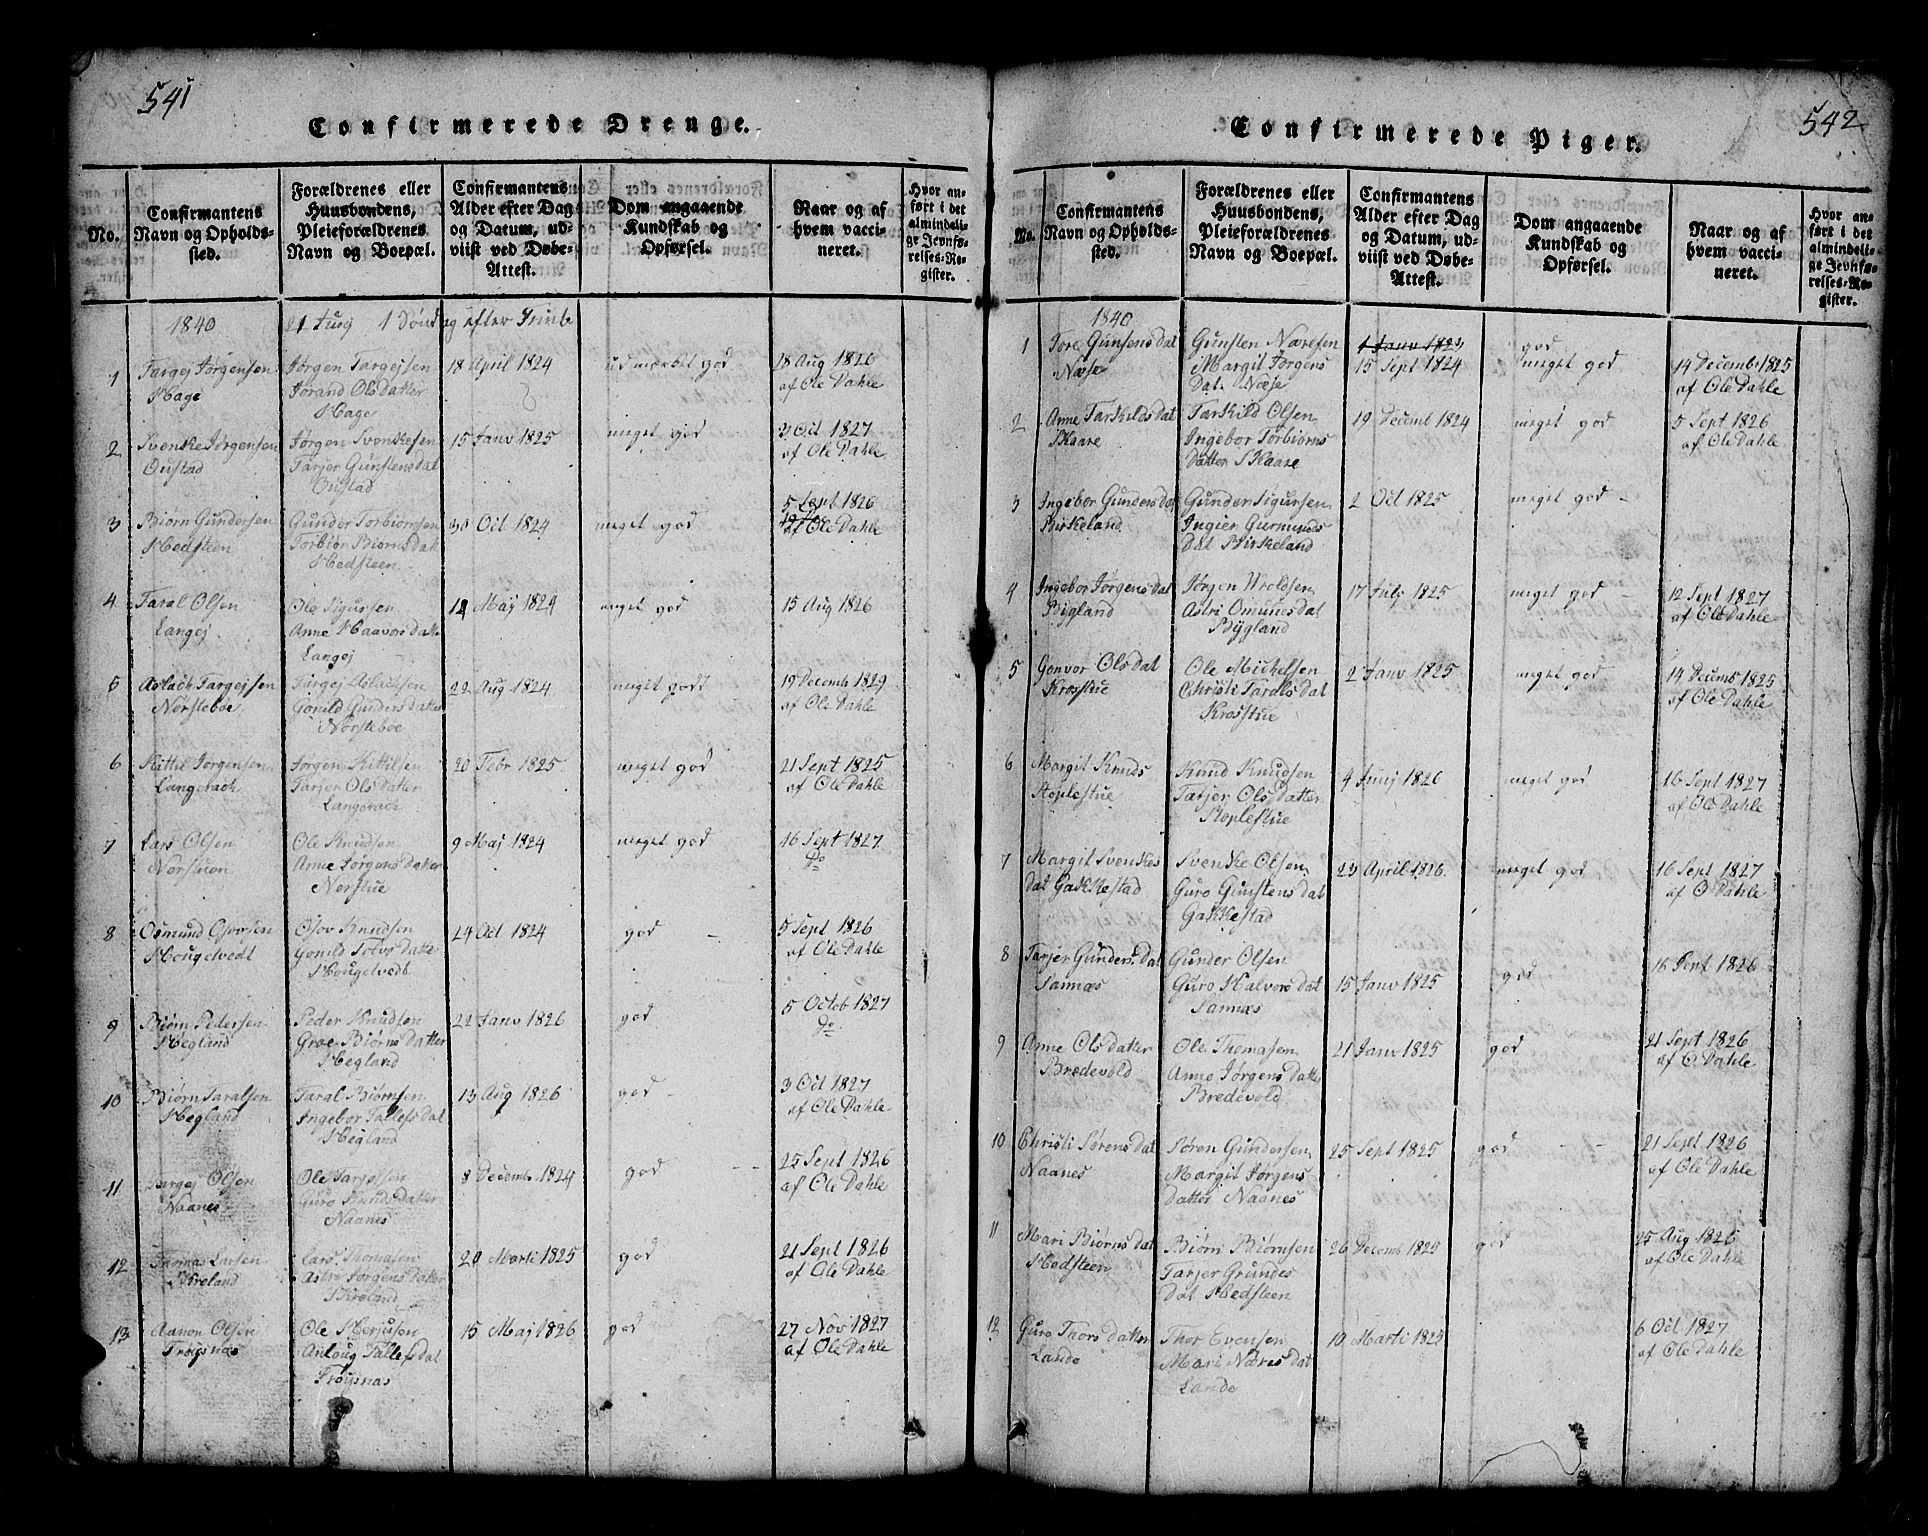 541
Confirmerede Drenge.
No.
Confirmantens
Navn og Opholds-
sted.
Forældrenes eller
Huusbondens,
Pleieforældrenes
Navn og Boepæl.
Confirmantens
Alder efter Dag
og Datum, ud-
viist ved Døbe-
Attest.
Dom angaaende
Kundskab og
Opførsel.
Naar og af
hvem vacci-
neret.
Hvor an-
ført i det
almindeli-
ge Jevnfø-
relses-Re-
gister.
1840 21 Junj 1 Søndag efter Trinit
1 Targej Jørgensen
Hage
Jørgen Targejsen
Jorand Ols Datter
Hage
18 April 1824
udmærket god
18 Aug 1826
af Ole Dahle
2 Svenke Jørgensen
Oustad
Jørgen Svenkesen
Tarjer Gunstensdat
Oustad
15 Janv 1825
meget god
3 Oct 1827
af Ole Dahle
3 Biørn Gundersen
Hedsteen
Gunder Torbiørnsen
Torbiør Biørnsdat
Hedsteen
30 Oct 1824
meget god
5 Sept 1826
af Ole Dahle
4 Taral Olsen
Langej
Ole Sigursen
Anne Haavorsdatter
Langej
12 Maj 1824
meget god
15 Aug 1826
5 Aslach Targejsen
Nørsteboe
Targej Aslachsen
Gonild Gundersdatter
Nørsteboe
22 Aug 1824
meget godt
19 Decemb 1829
af Ole Dahle
6 Kittil Jørgensen
Langerach
Jørgen Kittilsen
Tarjer Olsdatter
Langerach
20 Febr 1825
meget god
21 Sept 1825
af Ole Dahle
7 Lars Olsen
Norstuen
Ole Knudsen
Anne Jørgensdatter
Norstue
9 Maj 1824
meget god
16 Sept 1827
Do
8 Osmund Osovsen
Hougetvedt
Osov Knudsen
Gonild Datter
Hougetvedt
24 Oct 1824
god
5 Sept 1826
af Ole Dahle
9 Biørn Pedersen
Hegland
Peder Knudsen
Groe Biørnsdatter
Hegland
22 Janv 1826
god
5 Octob 1827
Do
10 Biørn Taralsen
Hegland
Taral Biørnsen
Ingebor Tallefsdat
Hegland
13 Aug 1826
god
3 Oct 1827
af Ole Dahle
11 Targej Olsen
Naanes
Ole Tarjejsen
Guro Knudsdatter
Naanes
8 Decemb 1824
god
25 Sept 1826
af Ole Dahle
12 Thomas Larsen
Skreland
Lars Thomasen
Astri Jørgensdatter
Skreland
20 Marti 1825
god
21 Sept 1826
af Ole Dahle
13 Aanon Olsen
Frøysnas
Ole Herjusen
Anloug Tallefsdat
Frøysnas
15 Maj 1826
god
27 Nov 1827
af Ole Dahle
542
Confirmerede Piger.
No.
Confirmantens
Navn og Opholds-
sted.
Forældrenes eller
Huusbondens,
Pleieforældrenes
Navn og Boepæl.
Confirmantens
Alder efter Dag
og Datum, ud-
viist ved Døbe-
Attest.
Dom angaaende
Kundskab og
Opførsel.
Naar og af
hvem vacci-
neret.
Hvor an-
ført i det
almindeli-
ge Jevnfø-
relses-Re-
gister.
1840
1 Tore Gunsensdat
Næse
Gunsten Næresen
Margit Jørgens
Dat. Næse
1 Janv 1824
15 Sept 1824
god
meget god
14 Decemb 1825
af Ole Dahle
2 Anne Tarkildsdat
Skaare
Tarkild Olsen
Ingebor Torbiørns
Datter Skaare
19 Decemb 1824
meget god
5 Sept 1826
af Ole Dahle
3 Ingebor Gundersdat
Birkeland
Gunder Sigursen
Ingier Gurmunds
Dat Birkeland
2 Oct 1825
meget god
4 Ingebor Jørgensdat
Bigland
Jørgen Aroldsen
Astri Omundsdat
Bygland
17 July 1825
meget god
12 Sept 1827
af Ole Dahle
5 Gonvor Olsdat
Krosstue
Ole Michelsen
Christi Taralsdat
Krosstue
2 Janv 1825
meget god
14 Decemb 1825
af Ole Dahle
6 Margit Knuds
Stoplestue
Knud Knudsen
Tarjer Olsdatter
Stoplestue
4 Junj 1826
meget god
16 Sept 1827
af Ole Dahle
7 Margit Svenkes
dat Gakkestad
Svenke Olsen
Guro Gunstensdat
Gakkestad
23 April 1826
meget god
16 Sept 1827
af O Dahle
8 Tarjer Gundersdat
Sannæs
Gunder Olsen
Guro Halvorsdat
Sannæs
15 Janv 1825
god
16 Sept 1826
9 Anne Olsdatter
Bredevold
Ole Thomasen
Anne Jørgensdatter
Bredevold
21 Janv 1825
god
21 Sept 1826
af O Dahle
10 Christi Sørensdat
Naanes
Søren Gundersen
Margit Jørgens
Datter Naanes
25 Sept 1825
god
21 Sept 1826
af Ole Dahle
11 Mari Biørnsdat
Hedsteen
Biørn Biørnsen
Tarjer Grundes
Dat Hedsteen
26 Decemb 1825
god
25 Aug 1826
af Ole Dahle
12 Guro Thorsdatter
Lande
Thor Evensen
Mari Næresdat
Lande
10 Marti 1825
6 Oct 1827
af Ole Dahle